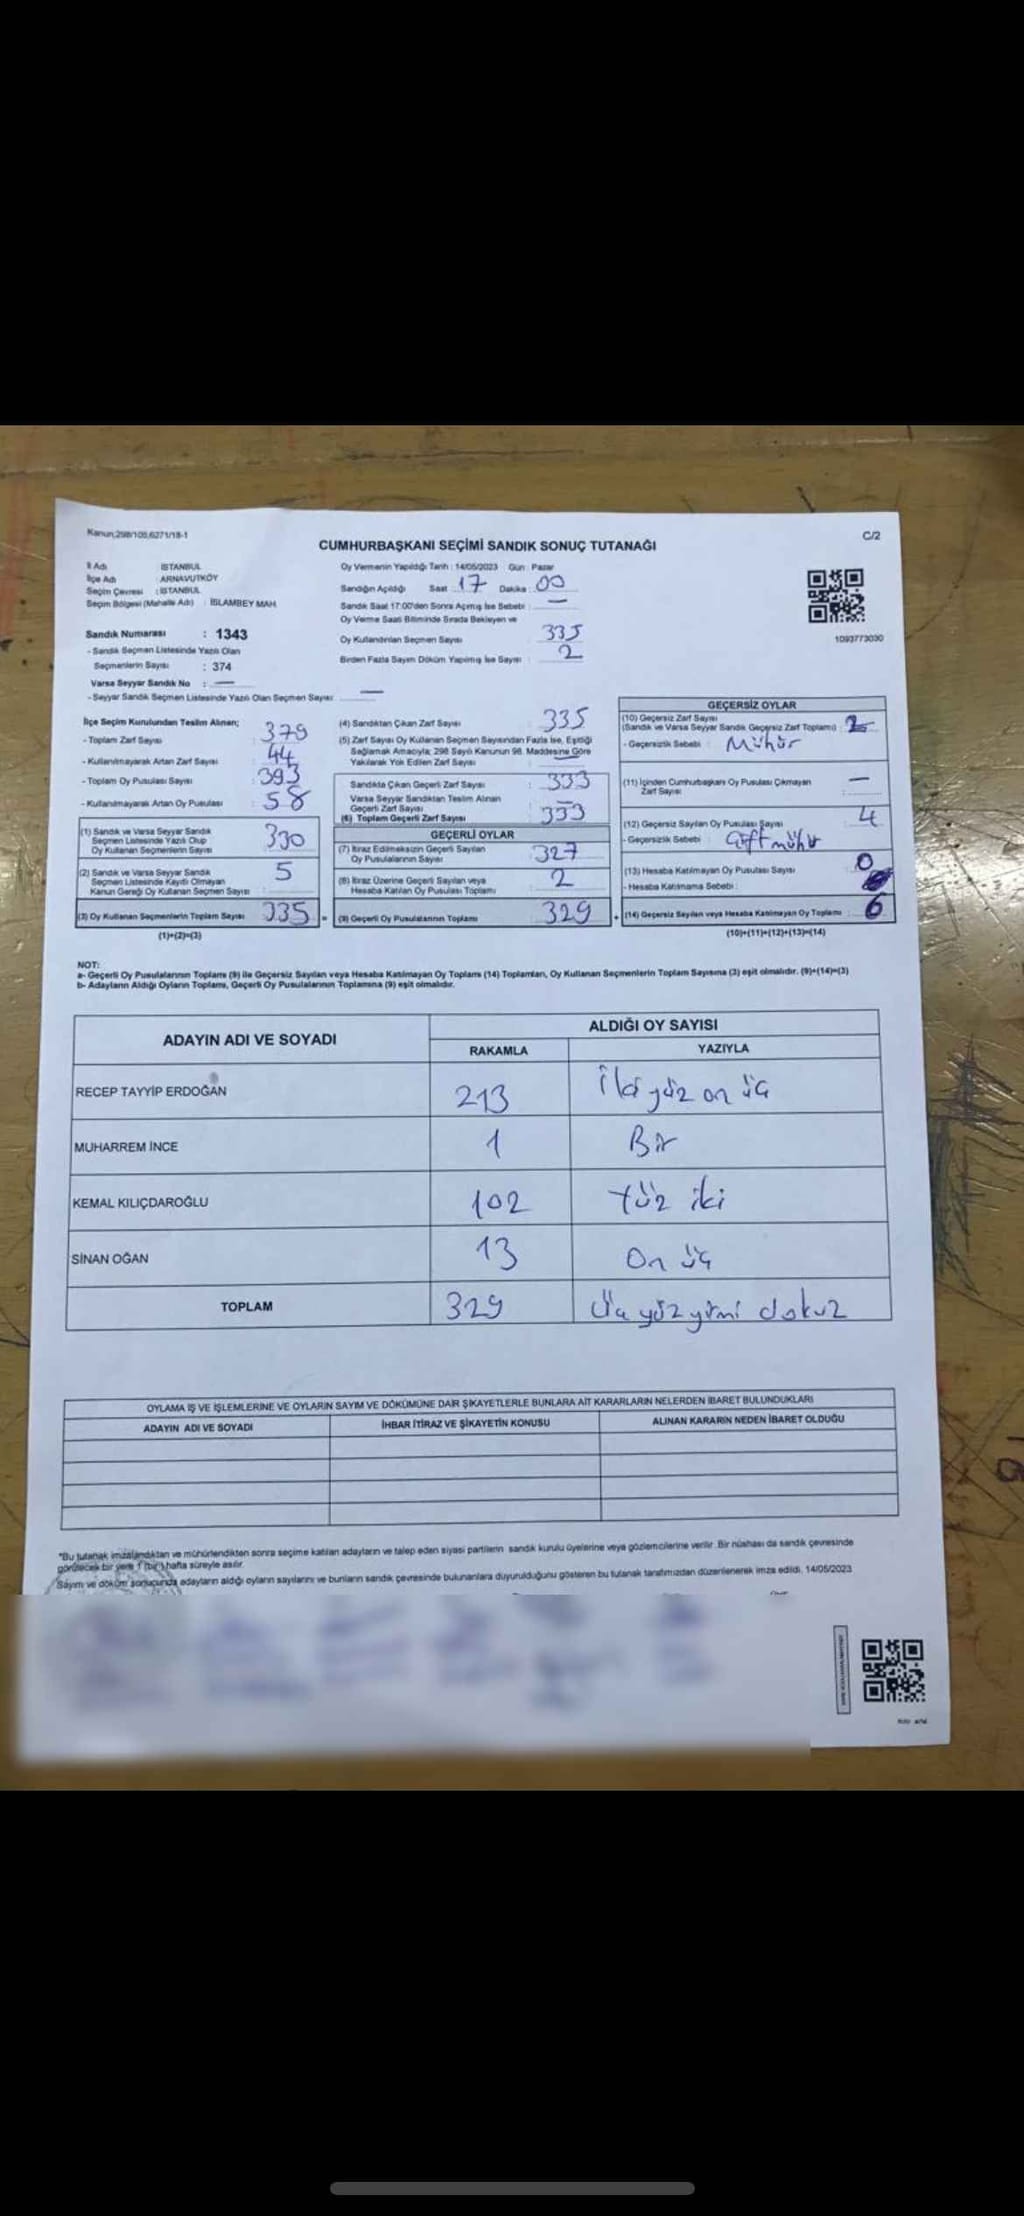 Kanun;298/105,6271/18-1
C/2
CUMHURBAŞKANI SEÇİMİ SANDIK SONUÇ TUTANAĞI
İl Adı : İSTANBUL
İlçe Adı : ARNAVUTKÖY
Seçim Çevresi : İSTANBUL
Seçim Bölgesi (Mahalle Adı) : İSLAMBEY MAH.
Sandık Numarası : 1343
- Sandık Seçmen Listesinde Yazılı Olan
Seçmenlerin Sayısı : 374
Varsa Seyyar Sandık No : —
- Seyyar Sandık Seçmen Listesinde Yazılı Olan Seçmen Sayısı: —
Oy Vermenin Yapıldığı Tarih : 14/05/2023 Gün : Pazar
Sandığın Açıldığı Saat : 17 Dakika : 00
Sandık Saat 17:00'den Sonra Açımış İse Sebebi : —
Oy Verme Saati Bitiminde Sırada Bekleyen ve
Oy Kullandırılan Seçmen Sayısı : 335
Birden Fazla Sayım Döküm Yapılmış İse Sayısı : 2
1093773030
İlçe Seçim Kurulundan Teslim Alınan;
- Toplam Zarf Sayısı : 379
- Kullanılmayarak Artan Zarf Sayısı : 44
- Toplam Oy Pusulası Sayısı : 393
- Kullanılmayarak Artan Oy Pusulası : 58
(1) Sandık ve Varsa Seyyar Sandık
Seçmen Listesinde Yazılı Olup
Oy Kullanan Seçmenlerin Sayısı : 330
(2) Sandık ve Varsa Seyyar Sandık
Seçmen Listesinde Kayıtlı Olmayan
Kanun Gereği Oy Kullanan Seçmen Sayısı : 5
(3) Oy Kullanan Seçmenlerin Toplam Sayısı : 335 =
(1)+(2)=(3)
(4) Sandıktan Çıkan Zarf Sayısı : 335
(5) Zarf Sayısı Oy Kullanan Seçmen Sayısından Fazla İse, Eşitliği
Sağlamak Amacıyla; 298 Sayılı Kanunun 98. Maddesine Göre
Yakılarak Yok Edilen Zarf Sayısı : —
Sandıkta Çıkan Geçerli Zarf Sayısı : 333
Varsa Seyyar Sandıktan Teslim Alınan
Geçerli Zarf Sayısı : —
(6) Toplam Geçerli Zarf Sayısı : 333
GEÇERLİ OYLAR
(7) İtiraz Edilmeksizin Geçerli Sayılan
Oy Pusulalarının Sayısı : 327
(8) İtiraz Üzerine Geçerli Sayılan veya
Hesaba Katılan Oy Pusulası Toplamı : 2
(9) Geçerli Oy Pusulalarının Toplamı : 329 +
GEÇERSİZ OYLAR
(10) Geçersiz Zarf Sayısı
(Sandık ve Varsa Seyyar Sandık Geçersiz Zarf Toplamı) : 2
- Geçersizlik Sebebi : Mühür
(11) İçinden Cumhurbaşkanı Oy Pusulası Çıkmayan
Zarf Sayısı : —
(12) Geçersiz Sayılan Oy Pusulası Sayısı : 4
- Geçersizlik Sebebi : Çift mühür
(13) Hesaba Katılmayan Oy Pusulası Sayısı : 0
- Hesaba Katılmama Sebebi :
(14) Geçersiz Sayılan veya Hesaba Katılmayan Oy Toplamı : 6
(10)+(11)+(12)+(13)=(14)
NOT:
a- Geçerli Oy Pusulalarının Toplamı (9) ile Geçersiz Sayılan veya Hesaba Katılmayan Oy Toplamı (14) Toplamları, Oy Kullanan Seçmenlerin Toplam Sayısına (3) eşit olmalıdır. (9)+(14)=(3)
b- Adayların Aldığı Oyların Toplamı, Geçerli Oy Pusulalarının Toplamına (9) eşit olmalıdır.
ADAYIN ADI VE SOYADI
ALDIĞI OY SAYISI
RAKAMLA YAZIYLA
RECEP TAYYİP ERDOĞAN 213 İki yüz on üç
MUHARREM İNCE 1 Bir
KEMAL KILIÇDAROĞLU 102 Yüz iki
SİNAN OĞAN 13 On üç
TOPLAM 329 Üç yüz yirmi dokuz
OYLAMA İŞ VE İŞLEMLERİNE VE OYLARIN SAYIM VE DÖKÜMÜNE DAİR ŞİKAYETLERLE BUNLARA AİT KARARLARIN NELERDEN İBARET BULUNDUKLARI
ADAYIN ADI VE SOYADI İHBAR İTİRAZ VE ŞİKAYETİN KONUSU ALINAN KARARIN NEDEN İBARET OLDUĞU
*Bu tutanak imzalandıktan ve mühürlendikten sonra seçime katılan adayların ve talep eden siyasi partilerin sandık kurulu üyelerine veya gözlemcilerine verilir. Bir nüshası da sandık çevresinde
görülecek bir yere 1 (bir) hafta süreyle asılır.
Sayım ve döküm sonucunda adayların aldığı oyların sayılarını ve bunların sandık çevresinde bulunanlara duyurulduğunu gösteren bu tutanak tarafımızdan düzenlenerek imza edildi. 14/05/2023